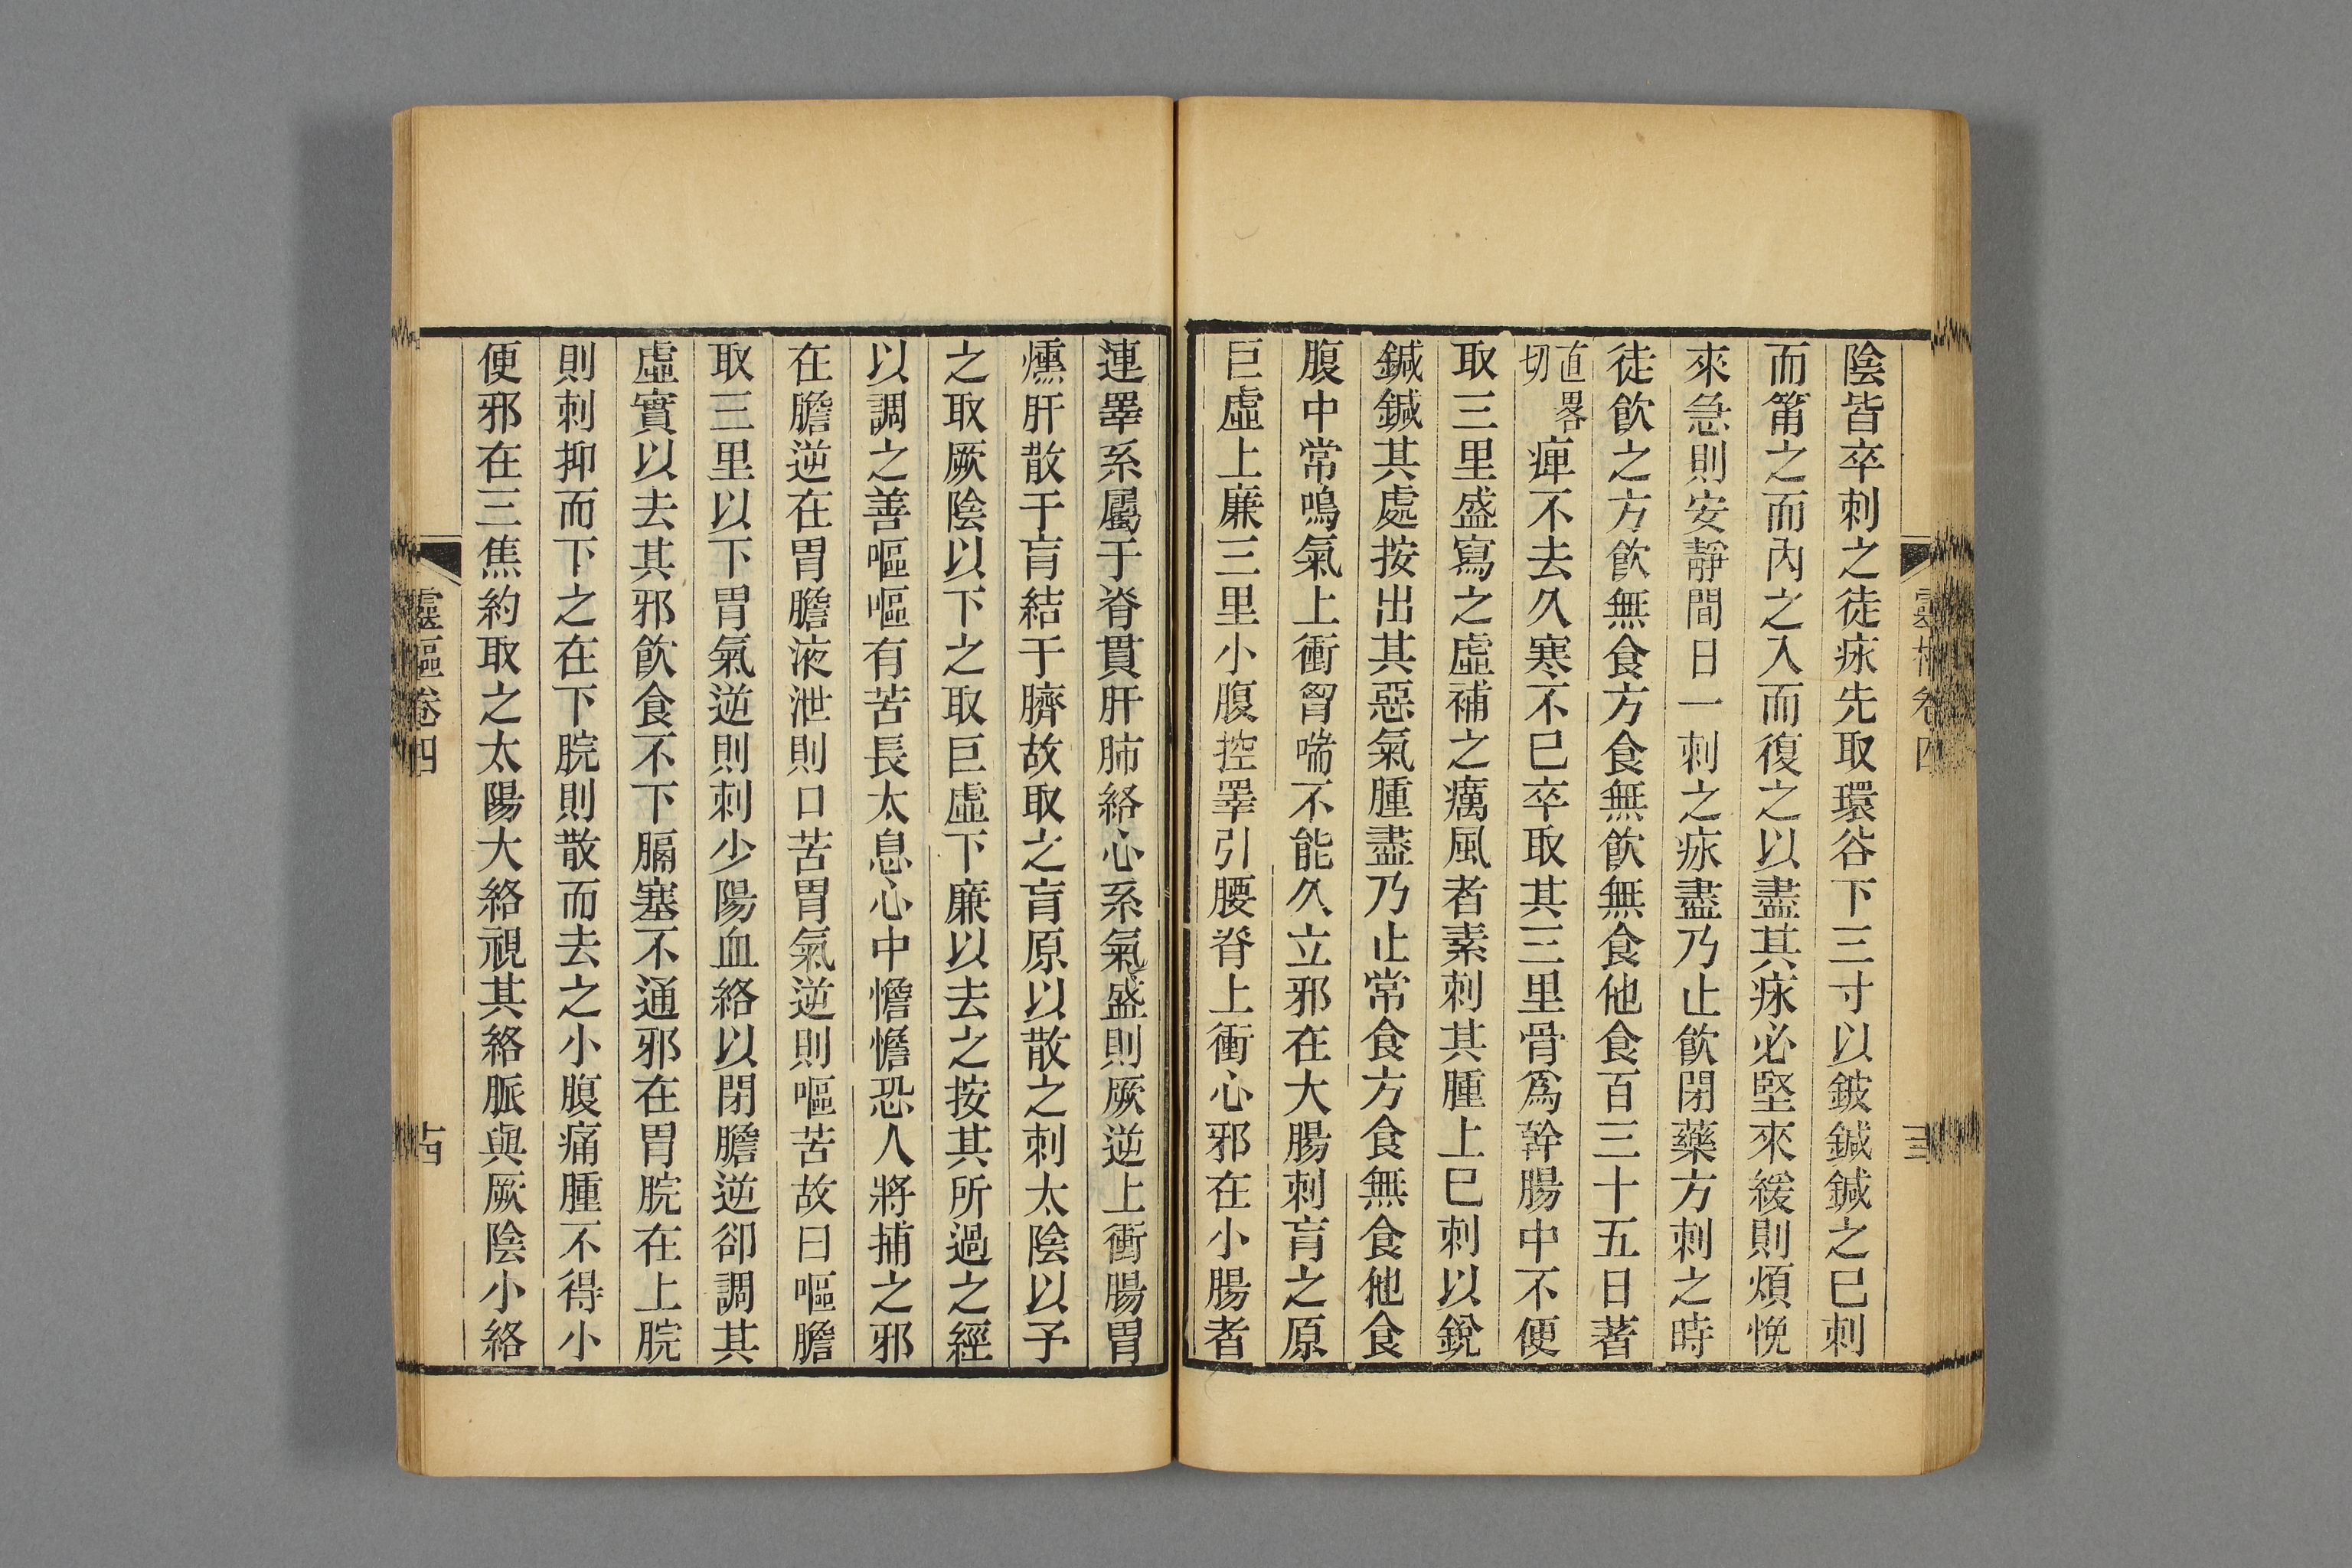 陰皆卒刺之徒㽷先取環谷下三寸以鈹鍼鍼之已刺
而筩之而內之入而復之以盡其㽷必堅來緩則煩悗
來急則安靜間日一刺之㽷盡乃止飮閉藥方刺之時
徒飮之方飮無食方食無飮無食他食百三十五日著
直畧切痺不去久寒不已卒取其三里骨爲幹腸中不便
取三里盛寫之虛補之癘風者素刺其腫上已刺以銳
鍼鍼其處按出其惡氣腫盡乃止常食方食無食他食
腹中常鳴氣上衝胷喘不能久立邪在大腸刺肓之原
巨虛上廉三里小腹控睪引腰脊上衝心邪在小腸者
連睪系屬于脊貫肝肺絡心系氣盛則厥逆上衝腸胃
燻肝散于肓結于臍故取之肓原以散之刺太陰以予
之取厥陰以下之取巨虛下廉以去之按其所過之經
以調之善嘔嘔有苦長太息心中憺憺恐人將捕之邪
在膽逆在胃膽液泄則口苦胃氣逆則嘔苦故曰嘔膽
取三里以下胃氣逆則刺少陽血絡以閉膽逆卻調其
虛實以去其邪飮食不下膈塞不通邪在胃脘在上脘
則刺抑而下之在下脘則散而去之小腹痛腫不得小
便邪在三焦約取之太陽大絡視其絡脈與厥陰小絡
靈樞卷四